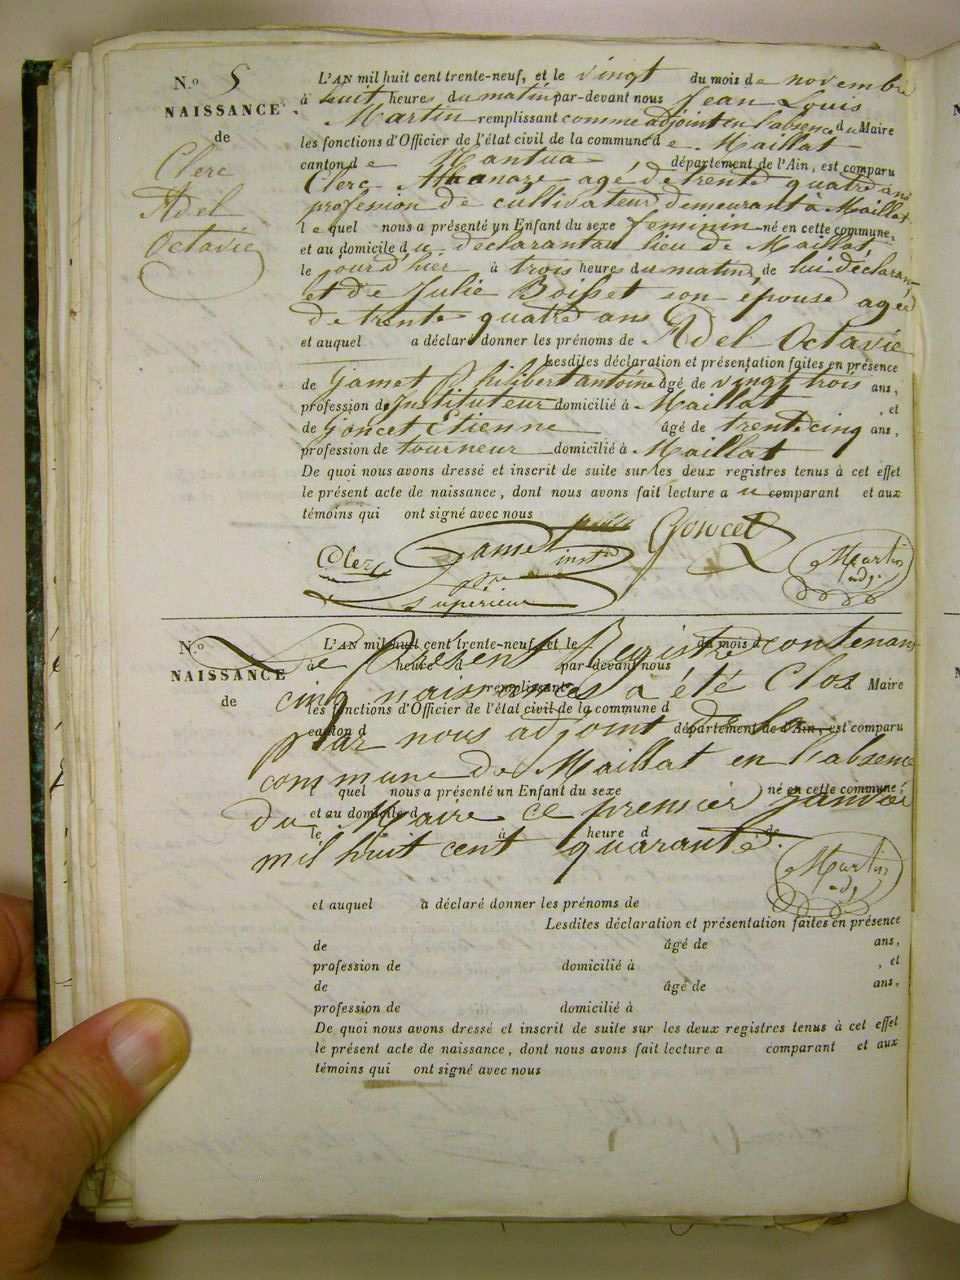 N.º 5
NAISSANCE
de
Clerc
Adel
Octavie
L'AN mil huit cent trente-neuf, et le vingt du mois de novembre
à huit heures du matin par-devant nous Jean Louis
Martin remplissant comme adjoint en l'absence du Maire
les fonctions d'Officier de l'état civil de la commune de Maillat
canton de Nantua département de l'Ain, est comparu
Clerc agé de trente quatre ans
profession de cultivateur demeurant à Maillat
lequel nous a présenté un Enfant du sexe feminin né en cette commune,
et au domicile du déclarant au lieu de Maillat
le jour d'hier à trois heures du matin, de lui déclarant
et de Julie Boisset son épouse agée
de trente quatre ans
et auquel a déclaré donner les prénoms de Adel Octavie
Lesdites déclaration et présentation faites en présence
de Gamet Philibert antoine âgé de vingt trois ans,
profession de Instituteur domicilié à Maillat , et
de Goncet Etienne âgé de trente cinq ans,
profession de tourneur domicilié à Maillat
De quoi nous avons dressé et inscrit de suite sur les deux registres tenus à cet effet
le présent acte de naissance, dont nous avons fait lecture au comparant et aux
témoins qui ont signé avec nous
Clerc Gamet Goncet Martin
inst. adj.
supérieur
N.º
NAISSANCE
de
L'AN mil huit cent trente-neuf, et le du mois d
Le Présent Registre contenant
à heure d par-devant nous
remplissant Maire
cinq naissances a été Clos
les fonctions d'Officier de l'état civil de la commune d
canton d département de l'Ain, est comparu
par nous adjoint de la
commune de Maillat en l'absence
quel nous a présenté un Enfant du sexe né en cette commune,
et au domicile d
du Maire ce premier janvier
le à heure d de
mil huit cent quarante.
Martin
adj.
et auquel a déclaré donner les prénoms de
Lesdites déclaration et présentation faites en présence
de âgé de ans,
profession de domicilié à , et
de âgé de ans,
profession de domicilié à
De quoi nous avons dressé et inscrit de suite sur les deux registres tenus à cet effet
le présent acte de naissance, dont nous avons fait lecture a comparant et aux
témoins qui ont signé avec nous